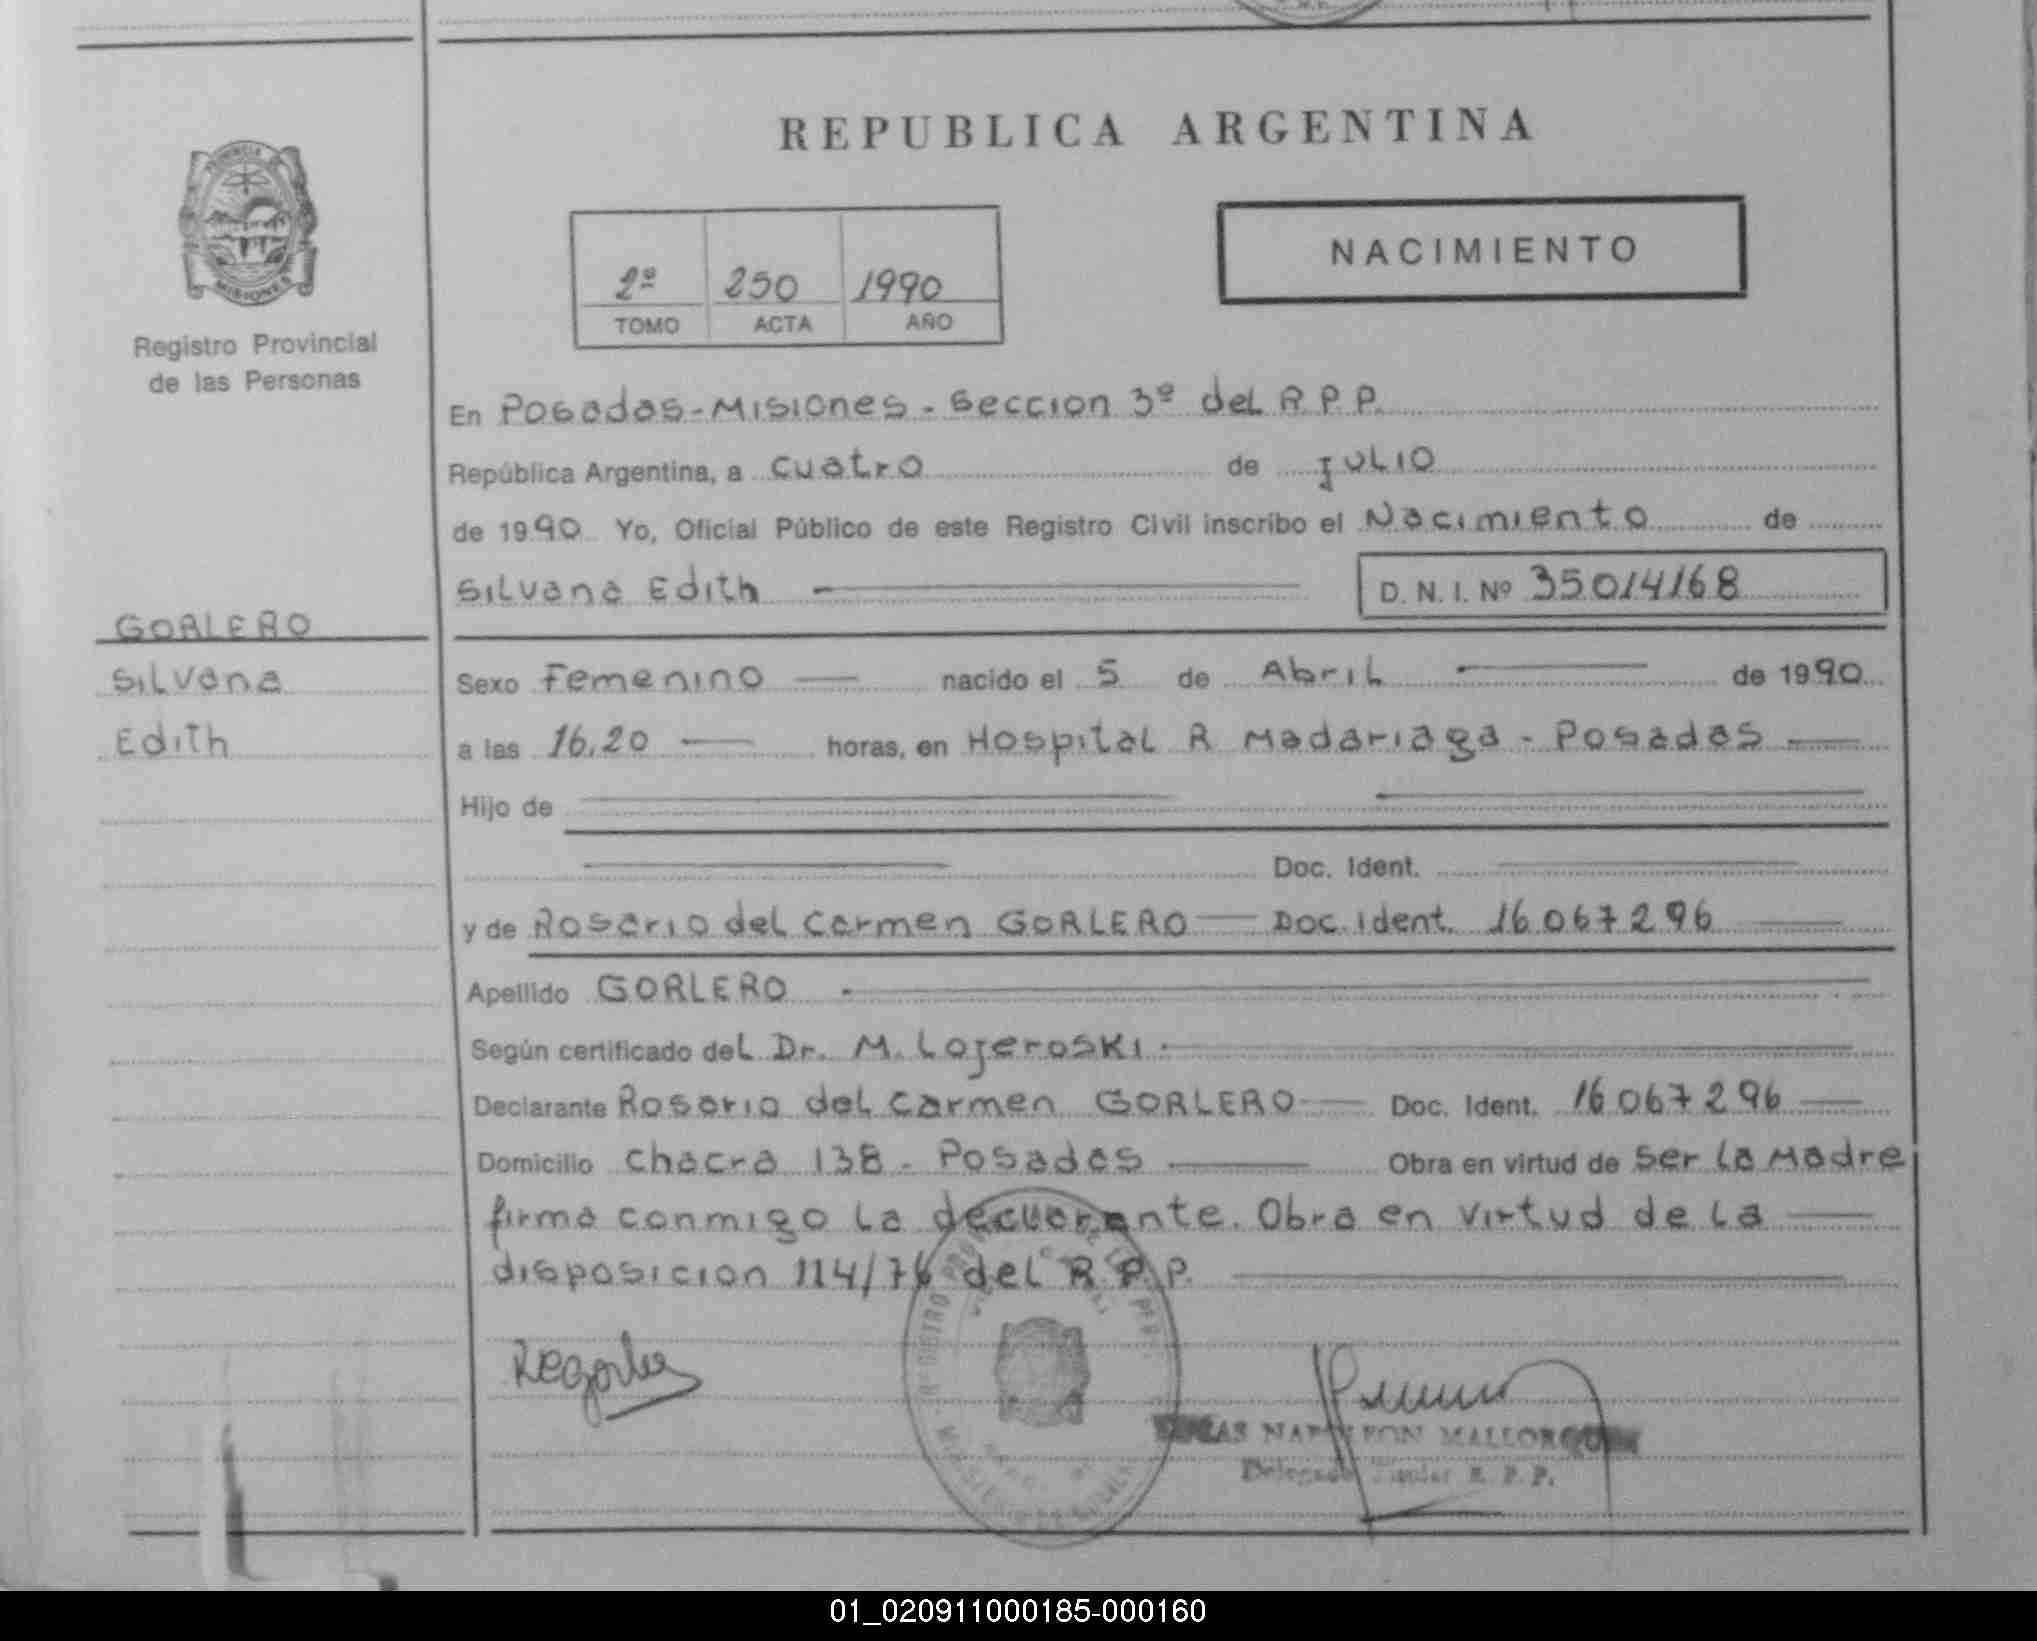 REPUBLICA ARGENTINA
PROVINCIA
MISIONES
Registro Provincial
de las Personas
2º 250 1990
TOMO ACTA AÑO
NACIMIENTO
En Posadas-Misiones-Seccion 3º del R.P.P.
República Argentina, a cuatro de julio
de 1990 Yo, Oficial Público de este Registro Civil inscribo el Nacimiento de
Silvana Edith D. N. I. Nº 35014168
GORLERO
Silvana
Edith
Sexo Femenino nacido el 5 de Abril de 1990
a las 16.20 horas, en Hospital R Madariaga - Posadas
Hijo de
Doc. Ident.
y de Rosario del Carmen GORLERO Doc. Ident. 16.067.296
Apellido GORLERO
Según certificado del Dr. M. Lojeroski.
Declarante Rosario del Carmen GORLERO Doc. Ident. 16.067.296
Domicilio Chacra 138 - Posadas Obra en virtud de ser la Madre
firma conmigo la declarante. Obra en virtud de la
disposicion 114/76 del R.P.P.
NAPOLEON MALLORQUIN
Delegado Titular R. P. P.
01_020911000185-000160